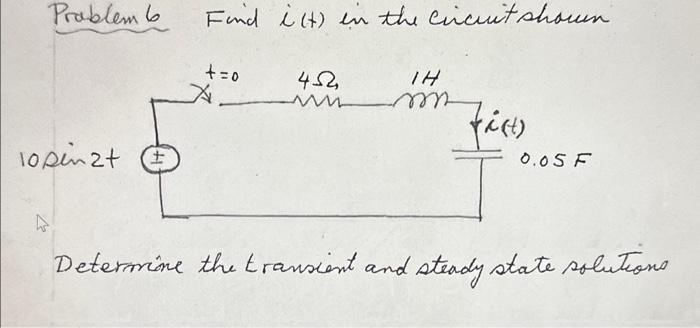 Problem 6 Find i(t) in the circuit shown
t=0 4Ω 1H
i(t)
10 sin 2t ± 0.05 F
Determine the transient and steady state solutions